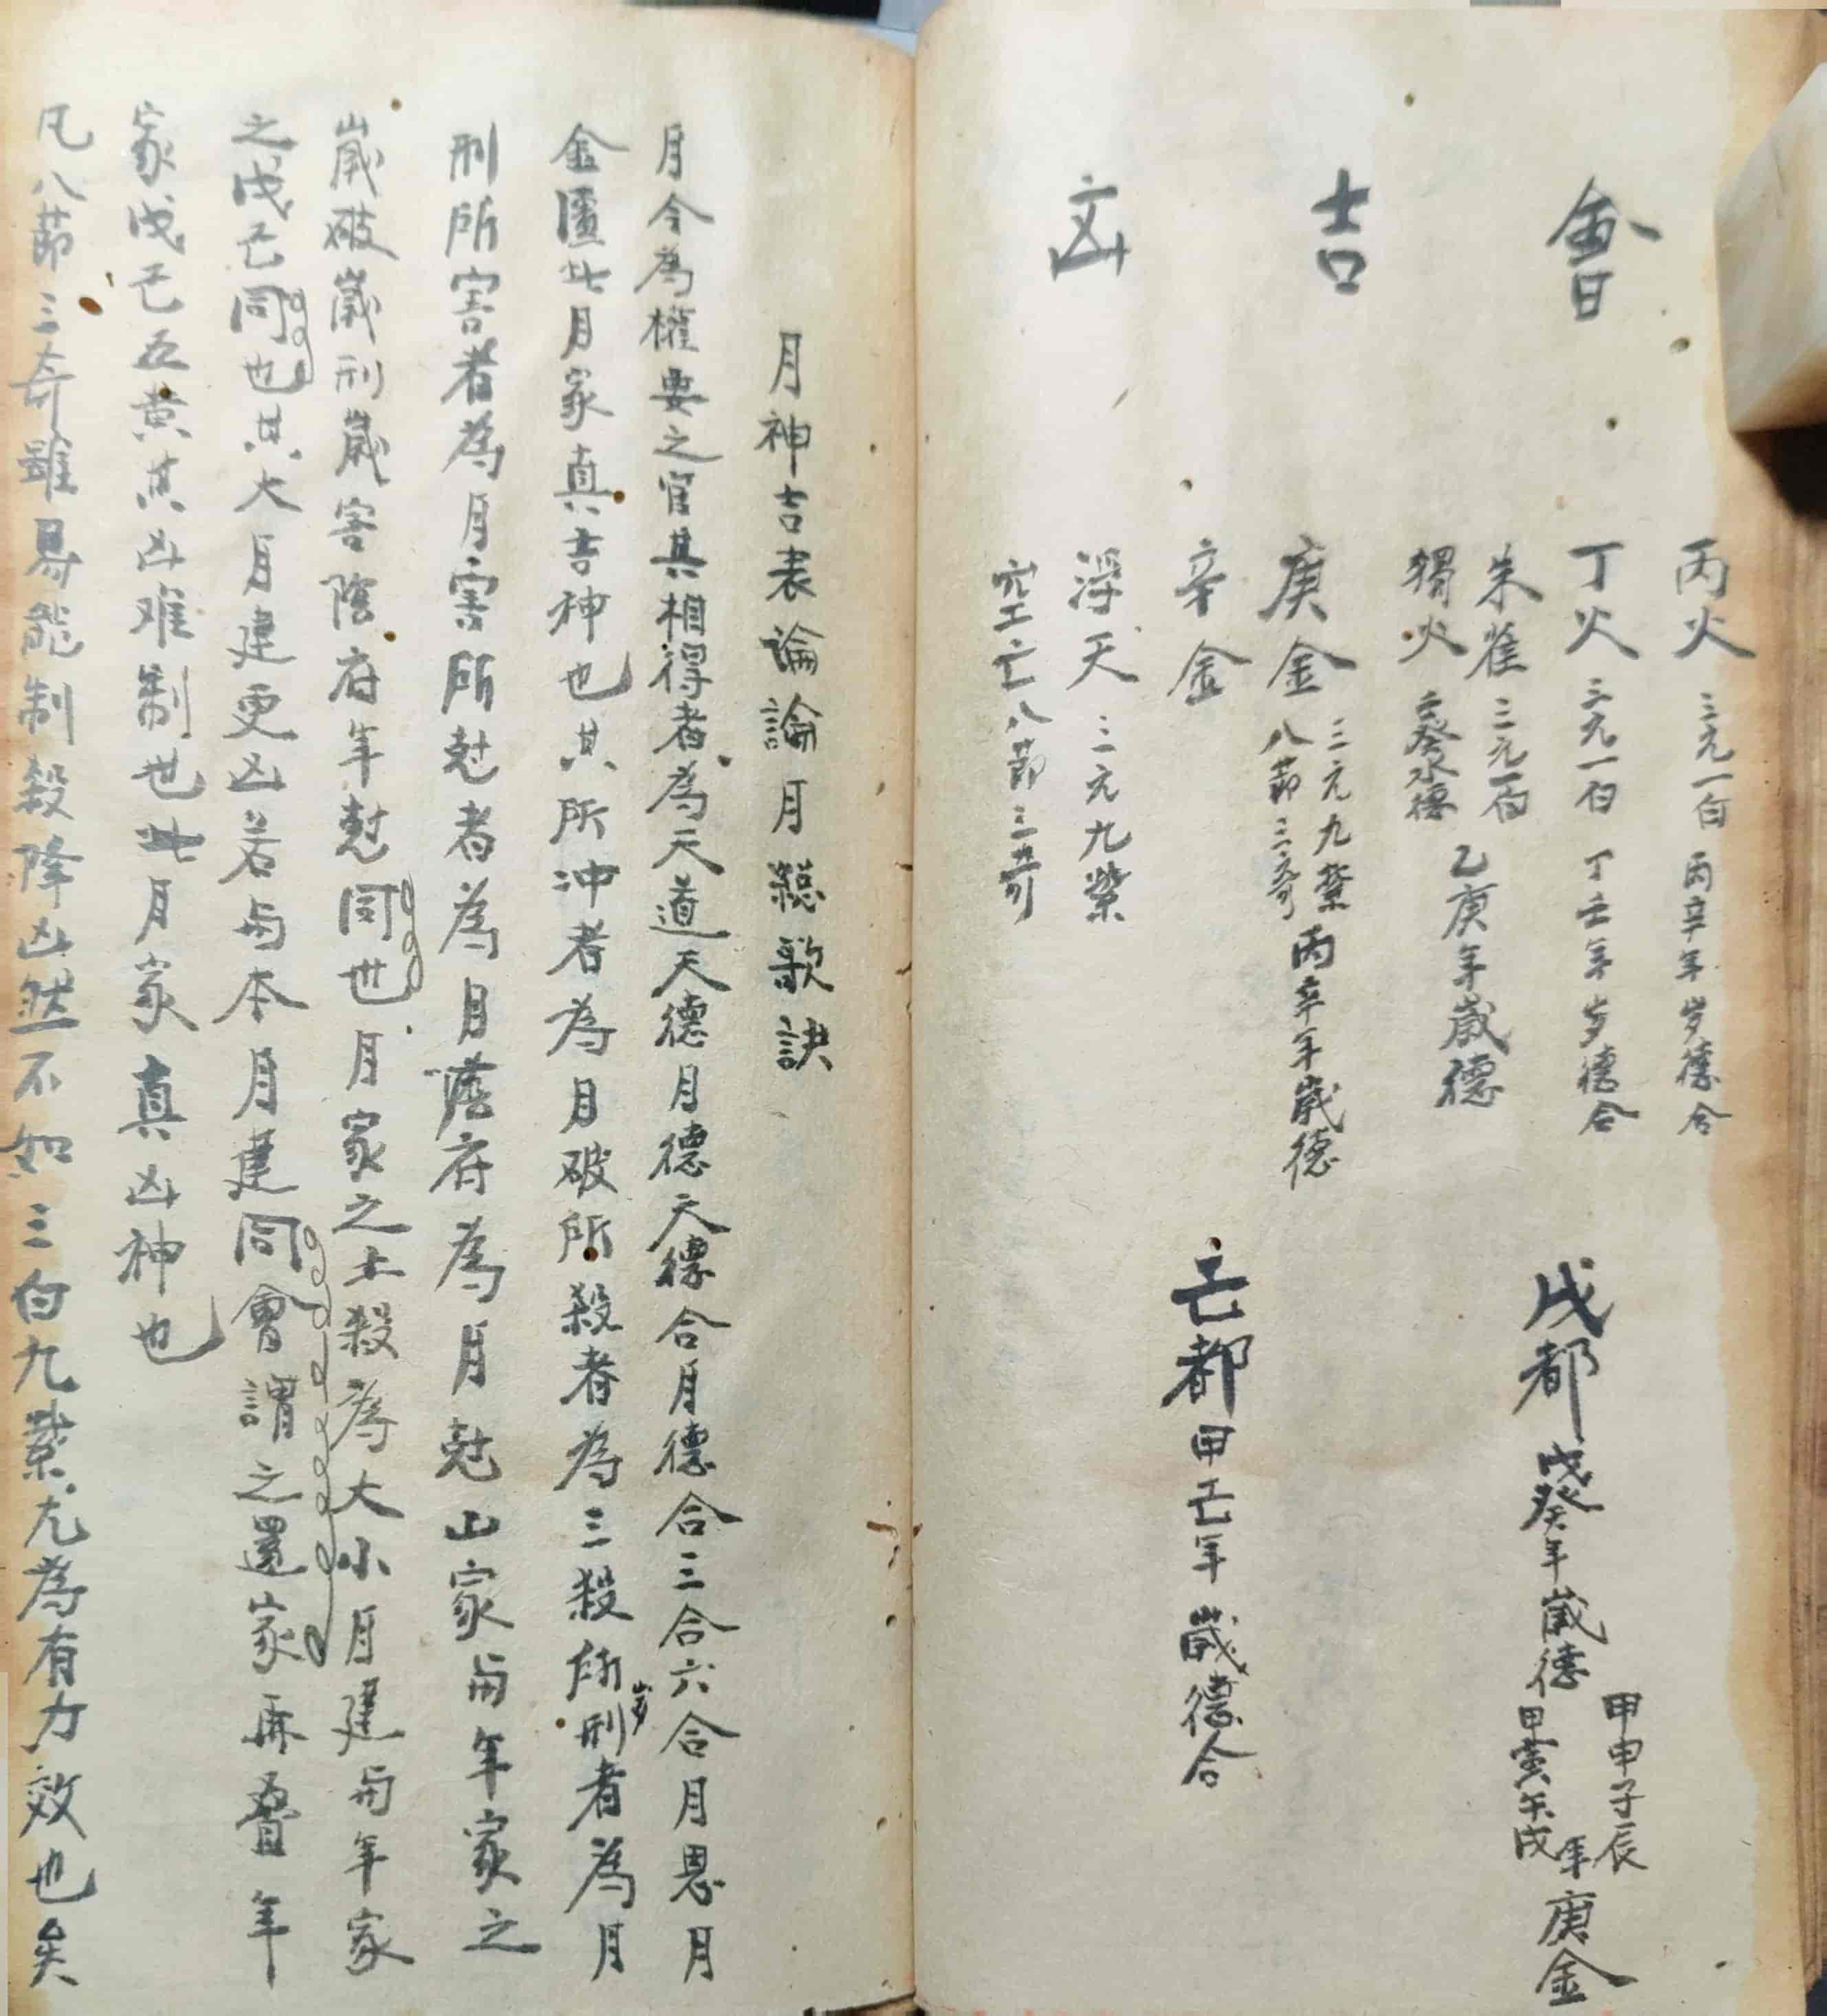 會
吉
凶
丙火 三元一白 丙辛年岁德合
丁火 三元一白 丁壬年岁德合
朱雀 三元一白
獨火 癸水德
乙庚年歲德
庚金 三元九紫
八節三奇
丙辛年歲德
辛金
浮天 三元九紫
空亡 八節三奇
戊都 戊癸年歲德
甲申子辰
甲寅午戌年
庚金
己都 甲己年歲德合
月神吉表論論月總歌訣
月令為權要之官其相得者為天道天德月德天德合月德合三合六合月恩月
金匱此月家真吉神也其所冲者為月破所殺者為三殺所刑岁者為月
刑所害者為月害所尅者為月陰府為月尅山家与年家之
歲破歲刑歲害陰府年尅同也月家之土殺為大小月建与年家
之戊己同也其大月建更凶若与本月建同會謂之還家再叠年
家戊己五黄其凶难制也此月家真凶神也
凡八節三奇雖易能制殺降凶然不如三白九紫尤為有力效也矣